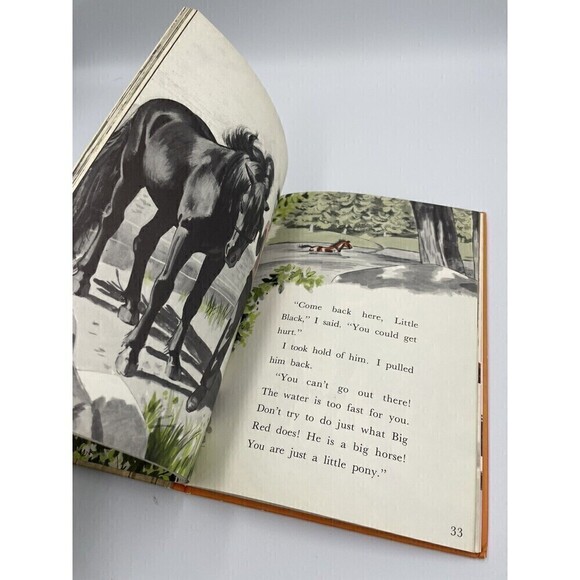 "Come back here, Little
Black," I said. "You could get
hurt."
I took hold of him. I pulled
him back.
"You can't go out there!
The water is too fast for you.
Don't try to do just what Big
Red does! He is a big horse!
You are just a little pony."
33